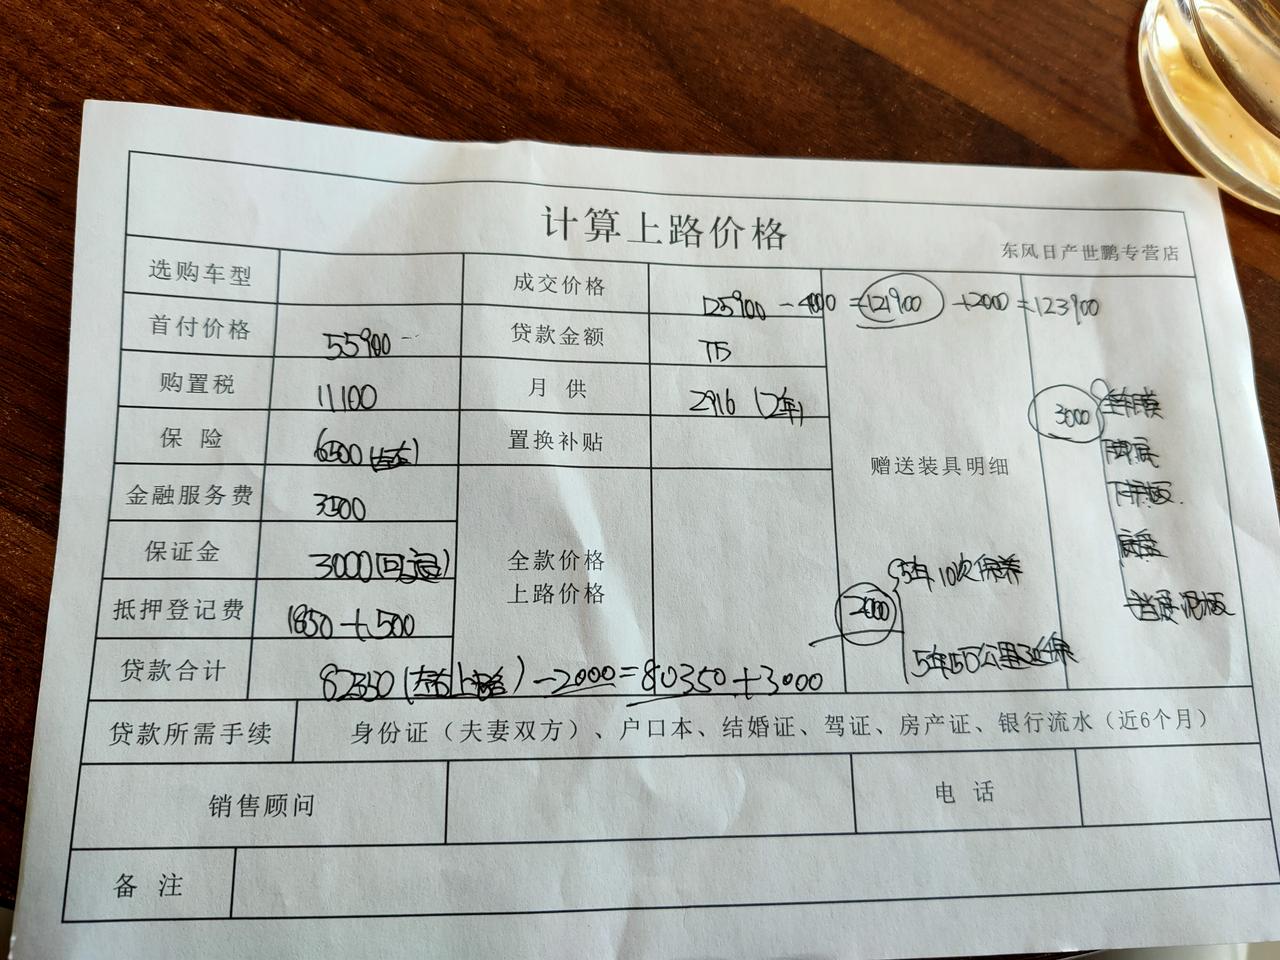 计算上路价格
东风日产世鹏专营店
选购车型 成交价格 125900-4000=121900+2000=123900
首付价格 55900 贷款金额 7万
购置税 11100 月供 2916(2年)
保险 6500(左右) 置换补贴
3000
脚底
下护板
赠送装具明细
金融服务费 3500
保证金 3000(可退)
全款价格
上路价格
2000
5年10次保养
挡泥板
抵押登记费 1850+500
5年15万公里延保
贷款合计 82350(左右上路)-2000=80350+3000
贷款所需手续 身份证（夫妻双方）、户口本、结婚证、驾证、房产证、银行流水（近6个月）
销售顾问 电话
备注